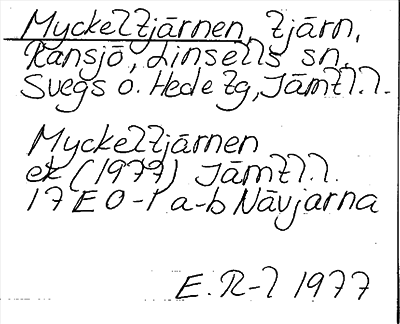 Myckeltjärnen, tjärn,
Ransjö, Linsells sn,
Svegs o. Hede tg, Jämtl.l.
Myckeltjärnen
ek (1977) Jämtl.l.
17E 0-1 a-b Nävjarna
E. R-l 1977